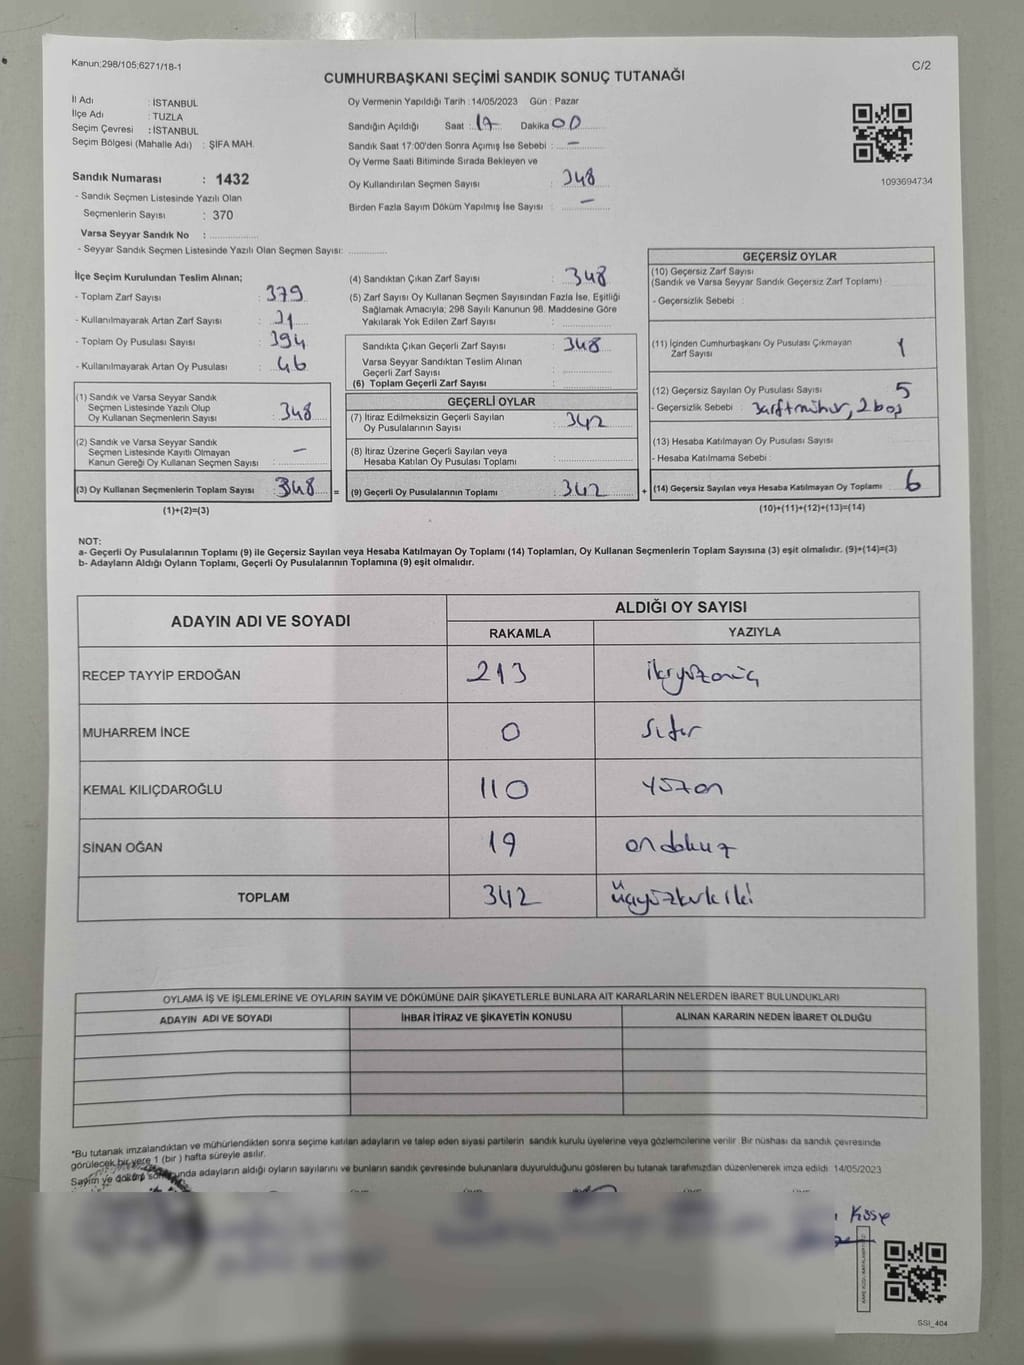 Kanun;298/105;6271/18-1
C/2
CUMHURBAŞKANI SEÇİMİ SANDIK SONUÇ TUTANAĞI
İl Adı : İSTANBUL
İlçe Adı : TUZLA
Seçim Çevresi : İSTANBUL
Seçim Bölgesi (Mahalle Adı) : ŞİFA MAH.
Sandık Numarası : 1432
- Sandık Seçmen Listesinde Yazılı Olan
Seçmenlerin Sayısı : 370
Varsa Seyyar Sandık No :
- Seyyar Sandık Seçmen Listesinde Yazılı Olan Seçmen Sayısı:
Oy Vermenin Yapıldığı Tarih : 14/05/2023 Gün : Pazar
Sandığın Açıldığı Saat : 17 Dakika 00
Sandık Saat 17:00'den Sonra Açımış İse Sebebi : -
Oy Verme Saati Bitiminde Sırada Bekleyen ve
Oy Kullandırılan Seçmen Sayısı : 348
Birden Fazla Sayım Döküm Yapılmış İse Sayısı : -
1093694734
İlçe Seçim Kurulundan Teslim Alınan;
- Toplam Zarf Sayısı : 379
- Kullanılmayarak Artan Zarf Sayısı : 31
- Toplam Oy Pusulası Sayısı : 394
- Kullanılmayarak Artan Oy Pusulası : 46
(1) Sandık ve Varsa Seyyar Sandık
Seçmen Listesinde Yazılı Olup
Oy Kullanan Seçmenlerin Sayısı : 348
(2) Sandık ve Varsa Seyyar Sandık
Seçmen Listesinde Kayıtlı Olmayan
Kanun Gereği Oy Kullanan Seçmen Sayısı : -
(3) Oy Kullanan Seçmenlerin Toplam Sayısı : 348 =
(1)+(2)=(3)
(4) Sandıktan Çıkan Zarf Sayısı : 348
(5) Zarf Sayısı Oy Kullanan Seçmen Sayısından Fazla İse, Eşitliği
Sağlamak Amacıyla; 298 Sayılı Kanunun 98. Maddesine Göre
Yakılarak Yok Edilen Zarf Sayısı :
Sandıkta Çıkan Geçerli Zarf Sayısı : 348
Varsa Seyyar Sandıktan Teslim Alınan
Geçerli Zarf Sayısı :
(6) Toplam Geçerli Zarf Sayısı :
GEÇERLİ OYLAR
(7) İtiraz Edilmeksizin Geçerli Sayılan
Oy Pusulalarının Sayısı : 342
(8) İtiraz Üzerine Geçerli Sayılan veya
Hesaba Katılan Oy Pusulası Toplamı :
(9) Geçerli Oy Pusulalarının Toplamı : 342 +
GEÇERSİZ OYLAR
(10) Geçersiz Zarf Sayısı
(Sandık ve Varsa Seyyar Sandık Geçersiz Zarf Toplamı) :
- Geçersizlik Sebebi :
(11) İçinden Cumhurbaşkanı Oy Pusulası Çıkmayan
Zarf Sayısı : 1
(12) Geçersiz Sayılan Oy Pusulası Sayısı : 5
- Geçersizlik Sebebi : 3arftmühür, 2 boş
(13) Hesaba Katılmayan Oy Pusulası Sayısı :
- Hesaba Katılmama Sebebi :
(14) Geçersiz Sayılan veya Hesaba Katılmayan Oy Toplamı : 6
(10)+(11)+(12)+(13)=(14)
NOT:
a- Geçerli Oy Pusulalarının Toplamı (9) ile Geçersiz Sayılan veya Hesaba Katılmayan Oy Toplamı (14) Toplamları, Oy Kullanan Seçmenlerin Toplam Sayısına (3) eşit olmalıdır. (9)+(14)=(3)
b- Adayların Aldığı Oyların Toplamı, Geçerli Oy Pusulalarının Toplamına (9) eşit olmalıdır.
ADAYIN ADI VE SOYADI
ALDIĞI OY SAYISI
RAKAMLA YAZIYLA
RECEP TAYYİP ERDOĞAN 213 ikiyüzonüç
MUHARREM İNCE 0 Sıfır
KEMAL KILIÇDAROĞLU 110 yüzon
SİNAN OĞAN 19 ondokuz
TOPLAM 342 üçyüzkırkiki
OYLAMA İŞ VE İŞLEMLERİNE VE OYLARIN SAYIM VE DÖKÜMÜNE DAİR ŞİKAYETLERLE BUNLARA AİT KARARLARIN NELERDEN İBARET BULUNDUKLARI
ADAYIN ADI VE SOYADI İHBAR İTİRAZ VE ŞİKAYETİN KONUSU ALINAN KARARIN NEDEN İBARET OLDUĞU
*Bu tutanak imzalandıktan ve mühürlendikten sonra seçime katılan adayların ve talep eden siyasi partilerin sandık kurulu üyelerine veya gözlemcilerine verilir. Bir nüshası da sandık çevresinde
görülecek bir yere 1 (bir) hafta süreyle asılır.
Sayım ve döküm sonunda adayların aldığı oyların sayılarını ve bunların sandık çevresinde bulunanlara duyurulduğunu gösteren bu tutanak tarafımızdan düzenlenerek imza edildi. 14/05/2023
Köse
SSI_404